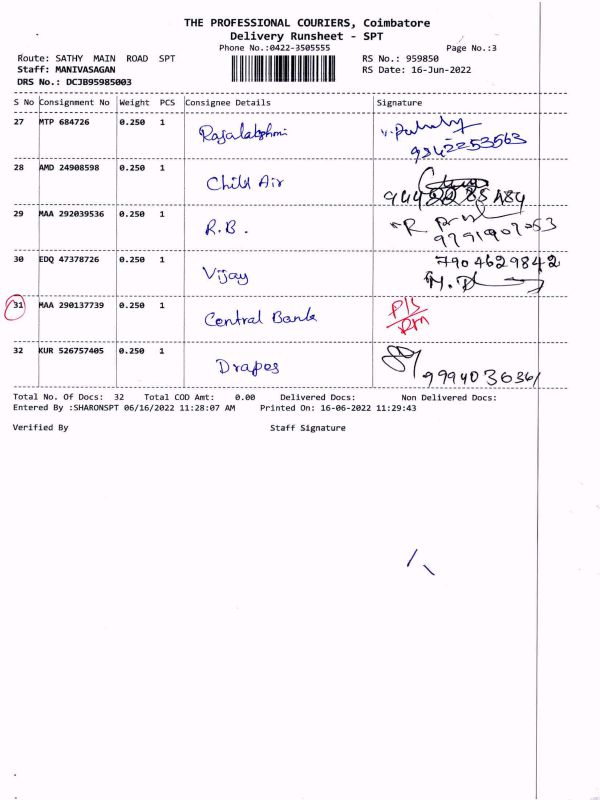 THE PROFESSIONAL COURIERS, Coimbatore
Delivery Runsheet - SPT
Phone No.:0422-3505555 Page No.:3
Route: SATHY MAIN ROAD SPT RS No.: 959850
Staff: MANIVASAGAN RS Date: 16-Jun-2022
DRS No.: DCJB95985003
S No Consignment No Weight PCS Consignee Details Signature
27 MTP 684726 0.250 1 Rajalakshmi
9342253563
28 AMD 24908598 0.250 1 Child Air
29 MAA 292039536 0.250 1 R.B.
30 EDQ 47378726 0.250 1 Vijay 7904629842
31 MAA 290137739 0.250 1 Central Bank
32 KUR 526757405 0.250 1 Drapes
Total No. Of Docs: 32 Total COD Amt: 0.00 Delivered Docs: Non Delivered Docs:
Entered By :SHARONSPT 06/16/2022 11:28:07 AM Printed On: 16-06-2022 11:29:43
Verified By Staff Signature